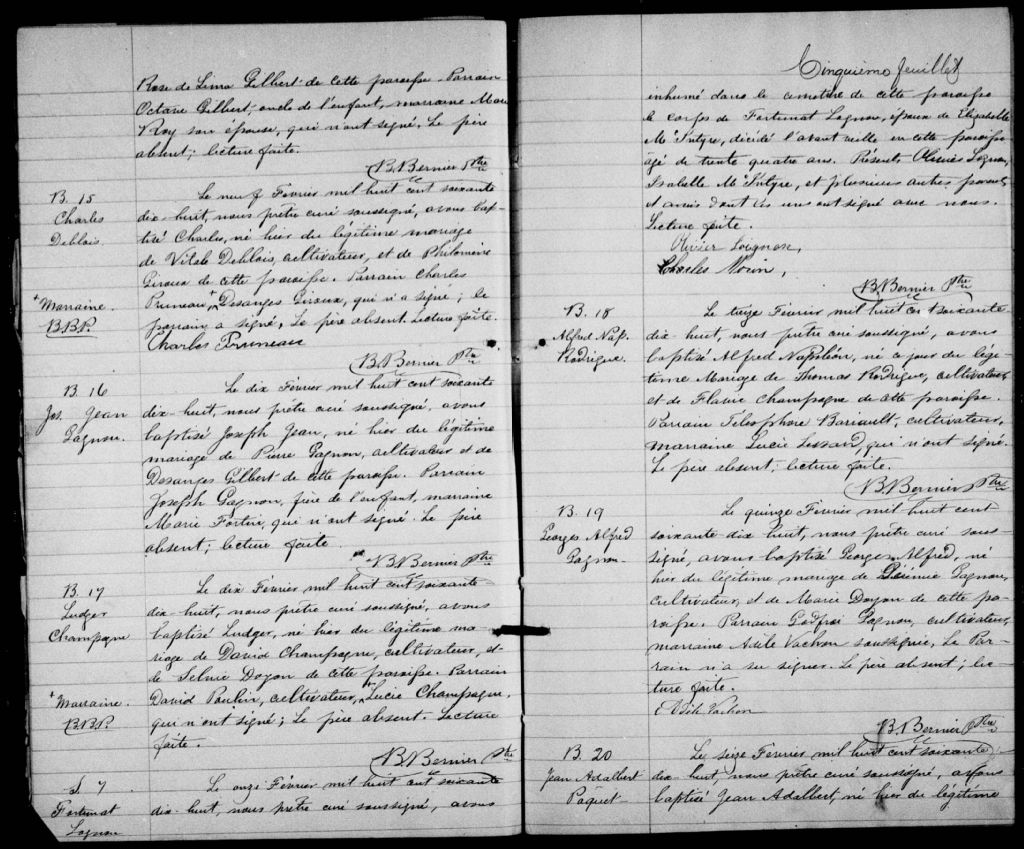 Rose de Lima Gilbert de cette paroisse. Parrain
Octave Gilbert, oncle de l'enfant, marraine Marie
Roy son épouse, qui n'ont signé. Le père
absent; lecture faite.
B. Bernier Ptre
B. 15
Charles
Deblois
Le neuf Février mil huit cent soixante
dix-huit, nous prêtre curé soussigné, avons bap-
tisé Charles, né hier du légitime mariage
de Vital Deblois, cultivateur, et de Philomène
Giroux de cette paroisse. Parrain Charles
+ Marraine.
B.B.P.
Pruneau + Desanges Giroux, qui n'a signé; le
parrain a signé, Le père absent. Lecture faite.
Charles Pruneau
B. Bernier Ptre
B. 16
Jos. Jean
Gagnon.
Le dix Février mil huit cent soixante
dix-huit, nous prêtre curé soussigné, avons
baptisé Joseph Jean, né hier du légitime
mariage de Pierre Gagnon, cultivateur et de
Desanges Gilbert de cette paroisse. Parrain
Joseph Gagnon, frère de l'enfant, marraine
Marie Fortin, qui n'ont signé. Le père
absent; lecture faite.
B. Bernier Ptre
B. 17
Ludger
Champagne
Le dix Février mil huit cent soixante
dix-huit, nous prêtre curé soussigné, avons
baptisé Ludger, né hier du légitime ma-
riage de David Champagne, cultivateur, et
de Doyon de cette paroisse. Parrain
+ Marraine.
B.B.P.
David Poulin, cultivateur, + Lucie Champagne,
qui n'ont signé; Le père absent. Lecture
faite.
B. Bernier Ptre
S. 7
Fortunat
Gagnon
Le onze Février mil huit cent soixante
dix-huit, nous prêtre curé soussigné, avons
Cinquième feuillet
inhumé dans le cimetière de cette paroisse
le corps de Fortunat Gagnon, époux de Elizabeth
McIntyre, décédé l'avant veille en cette paroisse
âgé de trente quatre ans. Présents Gagnon,
Isabelle McIntyre, et plusieurs autres parents
et amis dont les uns ont signé avec nous.
Lecture faite.
Olivier Gagnon,
Charles Morin,
B. Bernier Ptre
B. 18
Alfred Nap.
Rodrigue.
Le treize Février mil huit cent soixante
dix-huit, nous prêtre curé soussigné, avons
baptisé Alfred Napoléon, né ce jour du légi-
time Mariage de Thomas Rodrigue, cultivateur,
et de Flavie Champagne de cette paroisse.
Parrain Telesphore Bariault, cultivateur,
marraine Lucie Lessard, qui n'ont signé.
Le père absent; lecture faite.
B. Bernier Ptre
B. 19
Georges Alfred
Gagnon
Le quinze Février mil huit cent
soixante-dix-huit, nous prêtre curé sous
signé, avons baptisé Georges Alfred, né
hier du légitime mariage de Gagnon,
cultivateur, et de Marie Doyon de cette pa-
roisse. Parrain Godfroi Gagnon, cultivateur,
marraine Adèle Vachon soussignée, Le Par-
rain n'a su signer. Le père absent; lec-
ture faite.
Adèle Vachon
B. Bernier Ptre
B. 20
Jean Adalbert
Paquet
Le seize Février mil huit cent soixante
dix-huit, nous prêtre curé soussigné, avons
baptisé Jean Adalbert, né hier de légitime